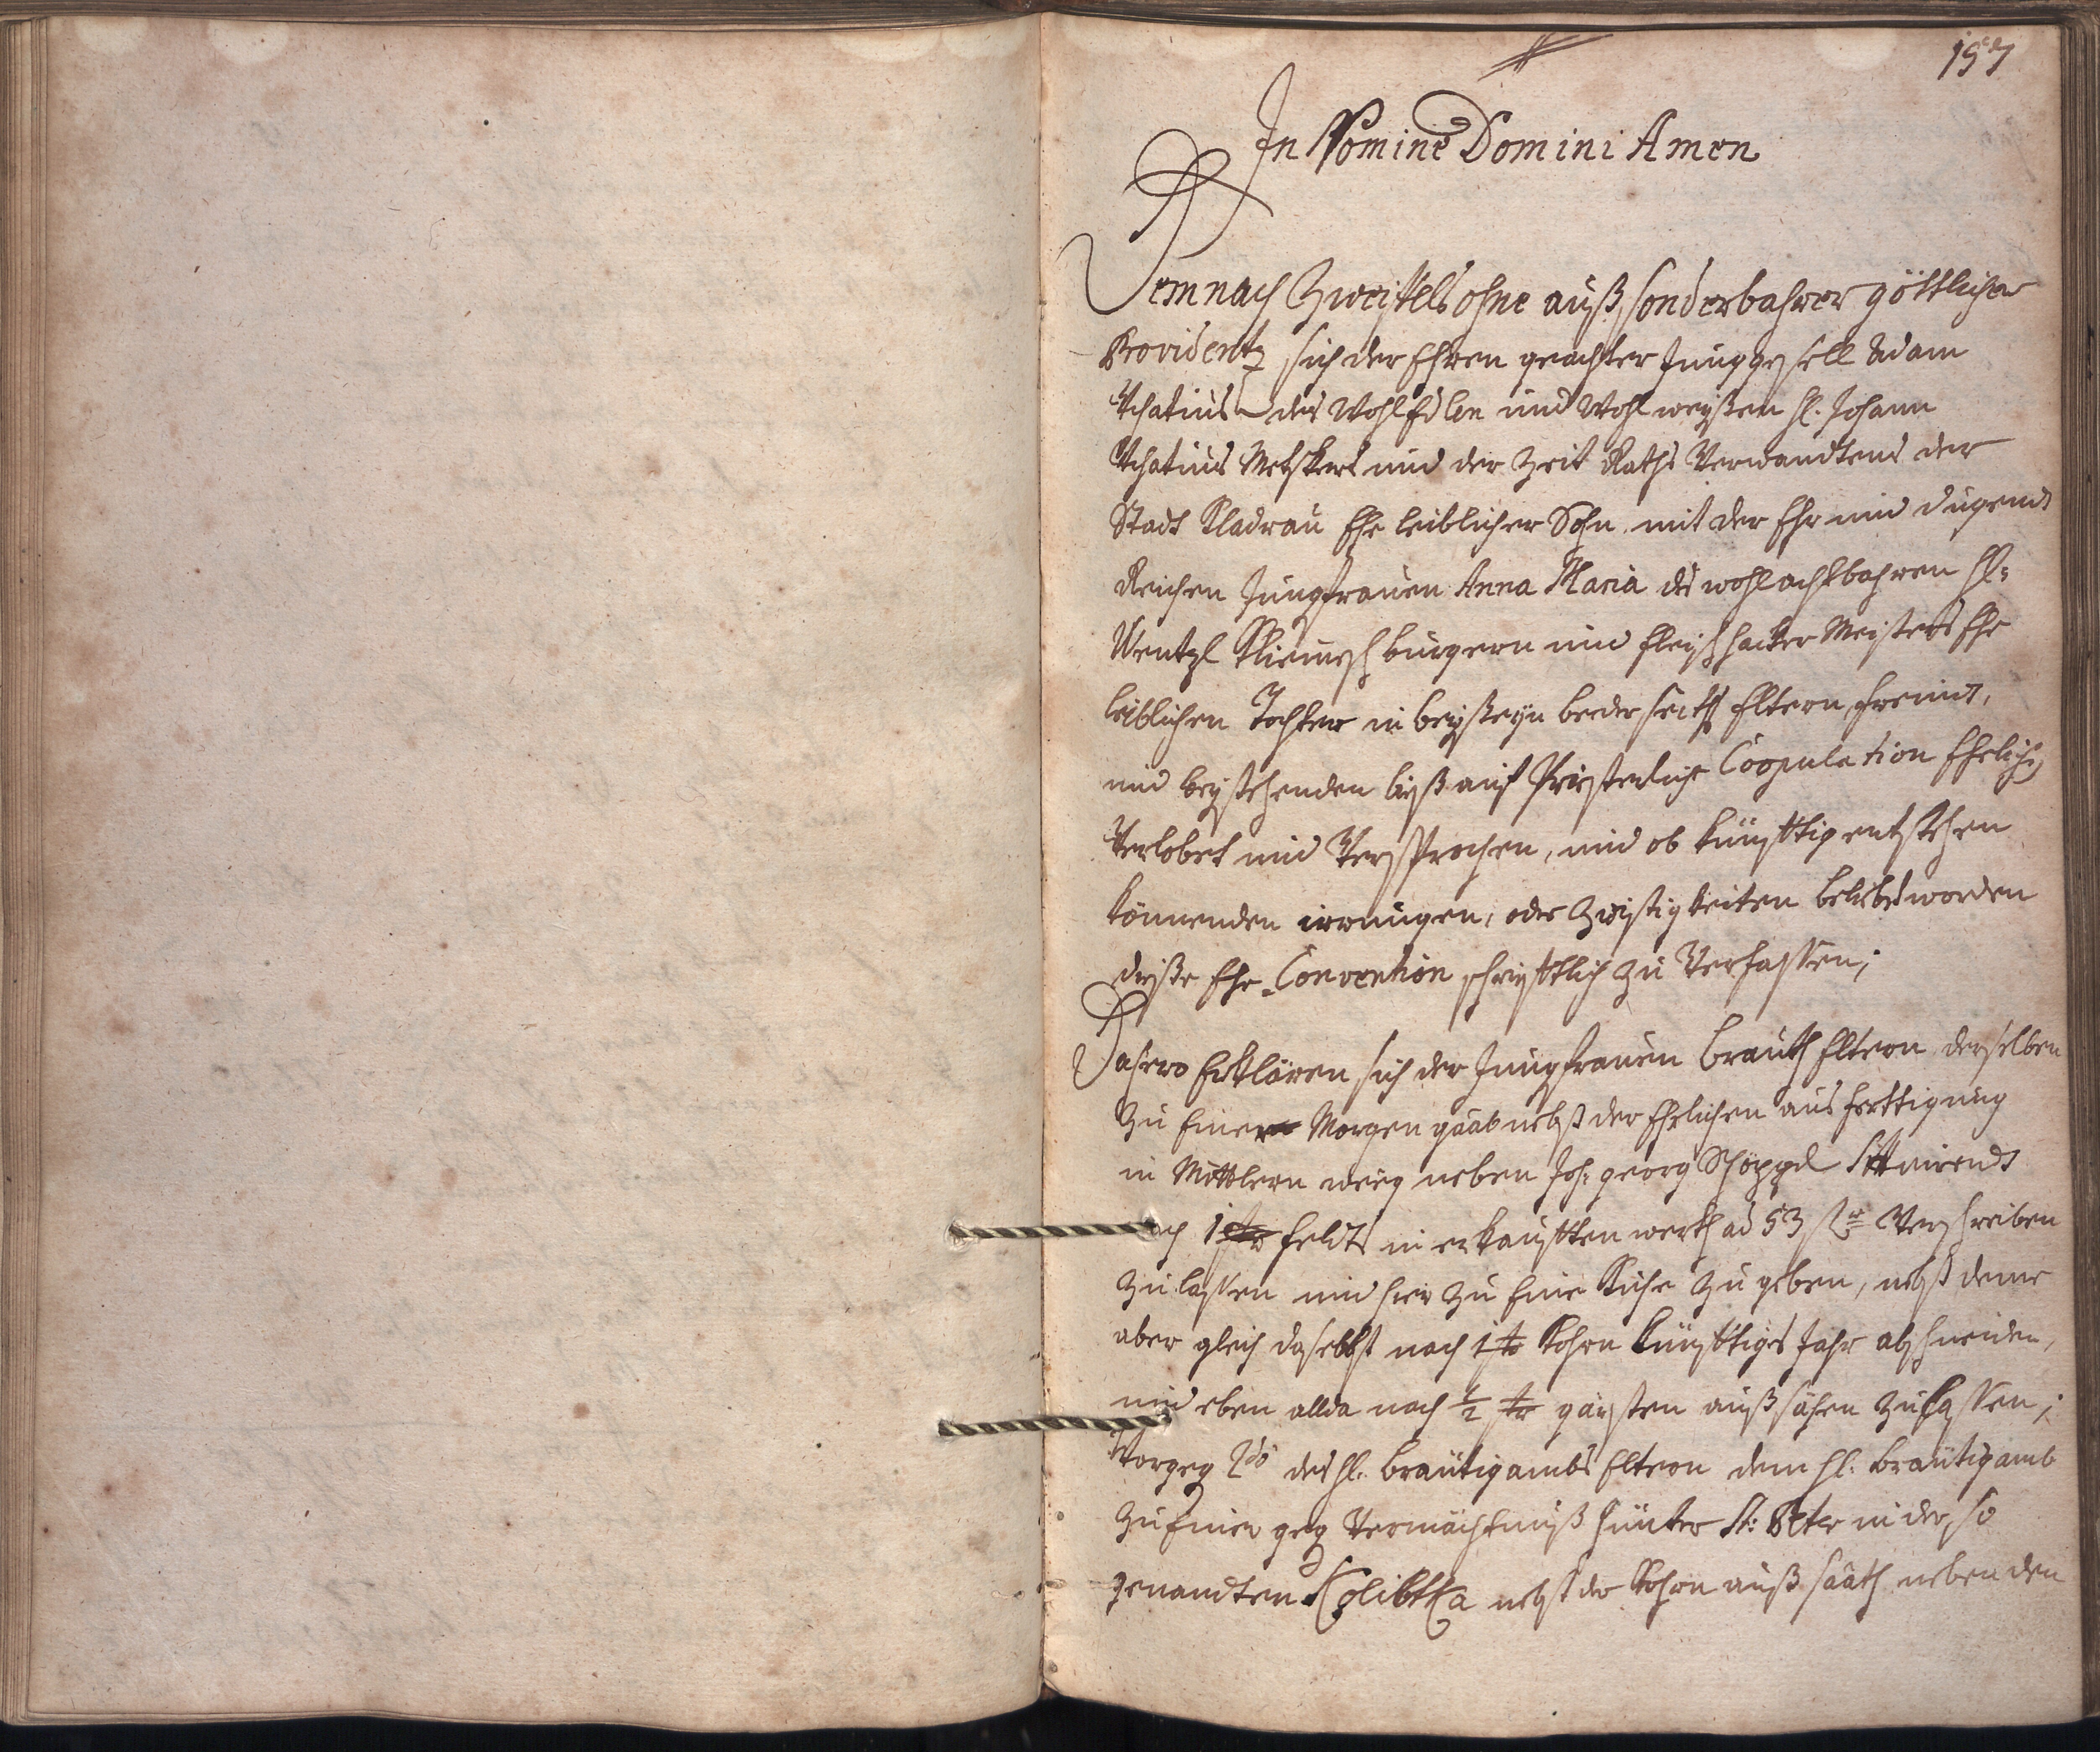 157
In Nomine Domini Amen
Demnach Zweiffels ohne auß sonderbahrer göttlicher
Providentz sich der Ehren geachter Junggesell Adam
Achatius des Wohl Edlen und Wohl weyßen H. Johann
Achatius und der Zeit Raths Verwandtens der
Stadt Kladrau Ehe leiblicher Sohn mit der Ehr und Tugend
Reichen Jungfrauen Anna Maria des wohl achtbahren H:
Wentzl burgern und fleischhacker Meisters Ehe
leiblichen Tochter in beyßeyn beeder seiths Eltern, freind,
und beystehenden biß auf Priesterliche Coopulation Ehelich
Verlobet und Versprochen, und ob künfftig entstehen
könnenden irrungen, oder Zwistigkeiten beliebet worden
dieße Ehe-Convention schrifftlich zu Verfassen;
Dahero Erklären sich der Jungfrauen brauth Eltern, derselben
zu Einer Morgen gaab nebst der Ehelichen ausferttigung
in Mittlern weeg neben Joh: georg Schöppl
nach 1 str feldt in erkaufften werth ad 53 fl Verschreiben
zu lassen und hier zu Eine Kuhe zu geben, nebst deme
aber gleich daselbst nach 1 str Kohrn künfftiges Jahr abschneiden,
und eben allda nach 1/2 str gersten auß sähen zu lassen;
Vorgeg 2do des H. bräutigambs Eltern dem H. bräutigamb
zu Einer geg Vermächtnuß hünter St: Peter in der so
genandten nebst der Kohrn auß saath neben den